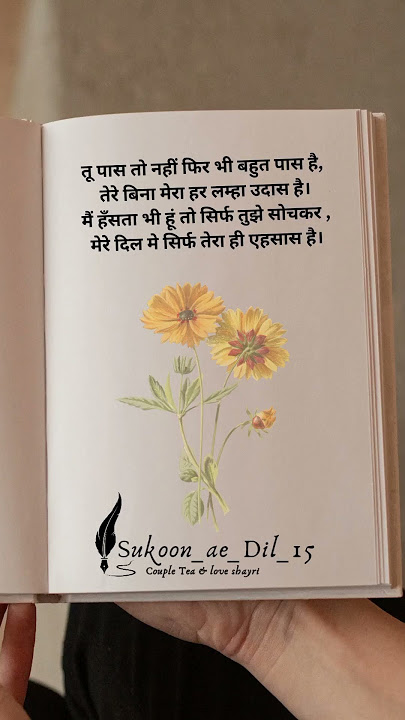 तू पास तो नहीं फिर भी बहुत पास है,
तेरे बिना मेरा हर लम्हा उदास है।
मैं हँसता भी हूं तो सिर्फ तुझे सोचकर ,
मेरे दिल मे सिर्फ तेरा ही एहसास है।
Sukoon_ae_Dil_15
Couple Tea & love shayri